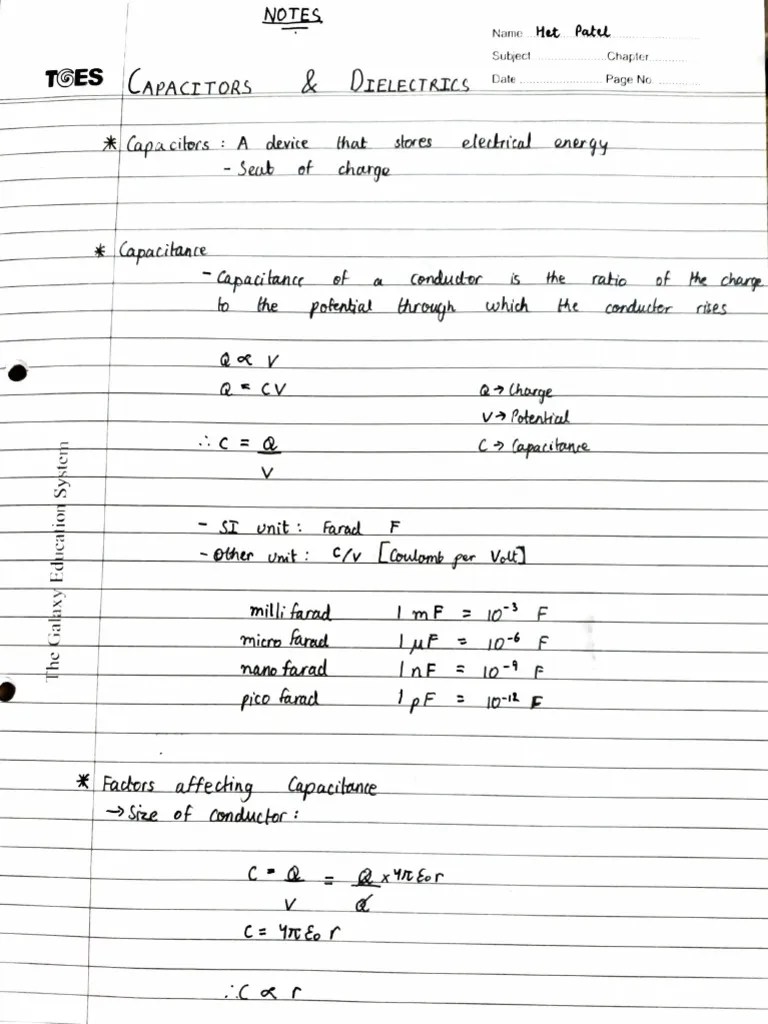 NOTES
Name Het Patel
Subject Chapter
Date Page No.
TGES
CAPACITORS & DIELECTRICS
* Capacitors : A device that stores electrical energy
- Seat of charge
* Capacitance
- Capacitance of a conductor is the ratio of the charge
to the potential through which the conductor rises
Q ∝ V
Q = CV
Q → Charge
V → Potential
∴ C = Q/V
C → Capacitance
- SI unit : Farad F
- Other unit : C/V [Coulomb per Volt]
milli farad 1 mF = 10⁻³ F
micro farad 1 μF = 10⁻⁶ F
nano farad 1 nF = 10⁻⁹ F
pico farad 1 pF = 10⁻¹² F
The Galaxy Education System
* Factors affecting Capacitance
→ Size of conductor :
C = Q/V = Q/Q × 4πε₀r
C = 4πε₀ r
∴ C ∝ r